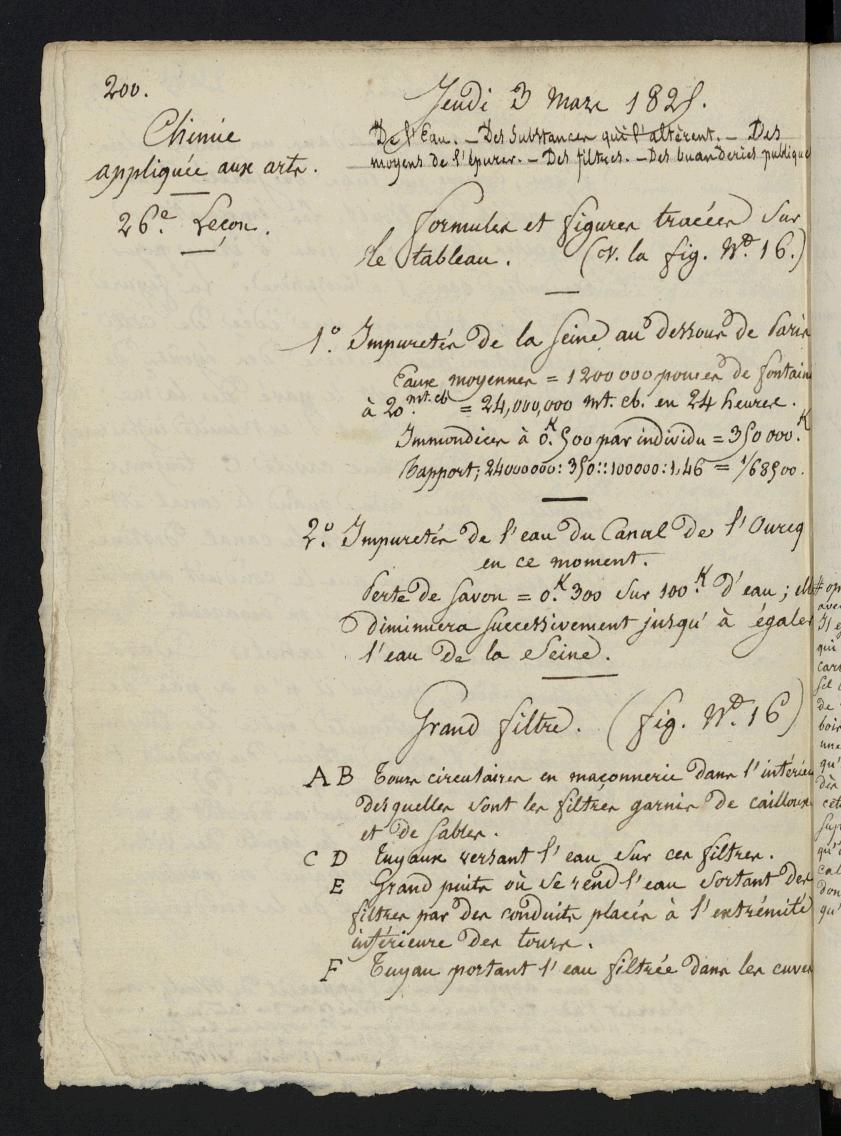 200.
Jeudi 3 Mars 1825.
Chimie
appliquée aux arts.
26e. Leçon.
De l'Eau. – Des Substances qui l'altèrent. – Des
moyens de l'épurer. – Des filtres. – Des buanderies publique
formules et figures tracées sur
le tableau. (v. la fig. No. 16.)
1o. Impuretés de la Seine au dessous de Paris
Eaux moyennes = 1200 000 pouces de fontain
à 20 mt. cb. = 24,000,000 mt. cb. en 24 heures.
Immondices à 0.K 500 par individu = 350 000.K
Rapport; 24000000 : 350 :: 100000 : 1,46 = 1/68500.
2o. Impuretés de l'eau du Canal de l'Ourcq
en ce moment.
Perte de savon = 0.K 300 sur 100.K d'eau; ell
diminuera successivement jusqu'à égaler
l'eau de la Seine.
Grand filtre. (fig. No. 16)
A B Tours circulaires en maçonnerie dans l'intérieu
desquelles sont les filtres garnis de cailloux
et de sables.
C D Tuyaux versant l'eau sur ces filtres.
E Grand puits où se rend l'eau sortant des
filtres par des conduits placés à l'extrémité
intérieure des tours.
F Tuyau portant l'eau filtrée dans les cuves